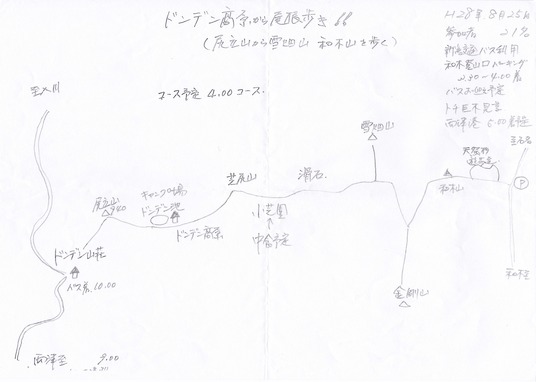 ドンデン高原から尾根歩き
(尻立山から雪畑山 和木山を歩く)
H28年.8月25日
参加者 21名
バス利用
和木登山口パーキング
2.30~4.00着
バスお迎え予定
トチ巨木見学
両津港 5.00着予定
コース予定 4.00コース.
至入川
雪畑山
天然杉
芝尻山
滑石
和木山
P
尻立山
940
キャンプ場
ドンデン池
小芝園
中食予定
ドンデン高原
ドンデン山荘
バス着.10.00
金剛山
両津発 9.00